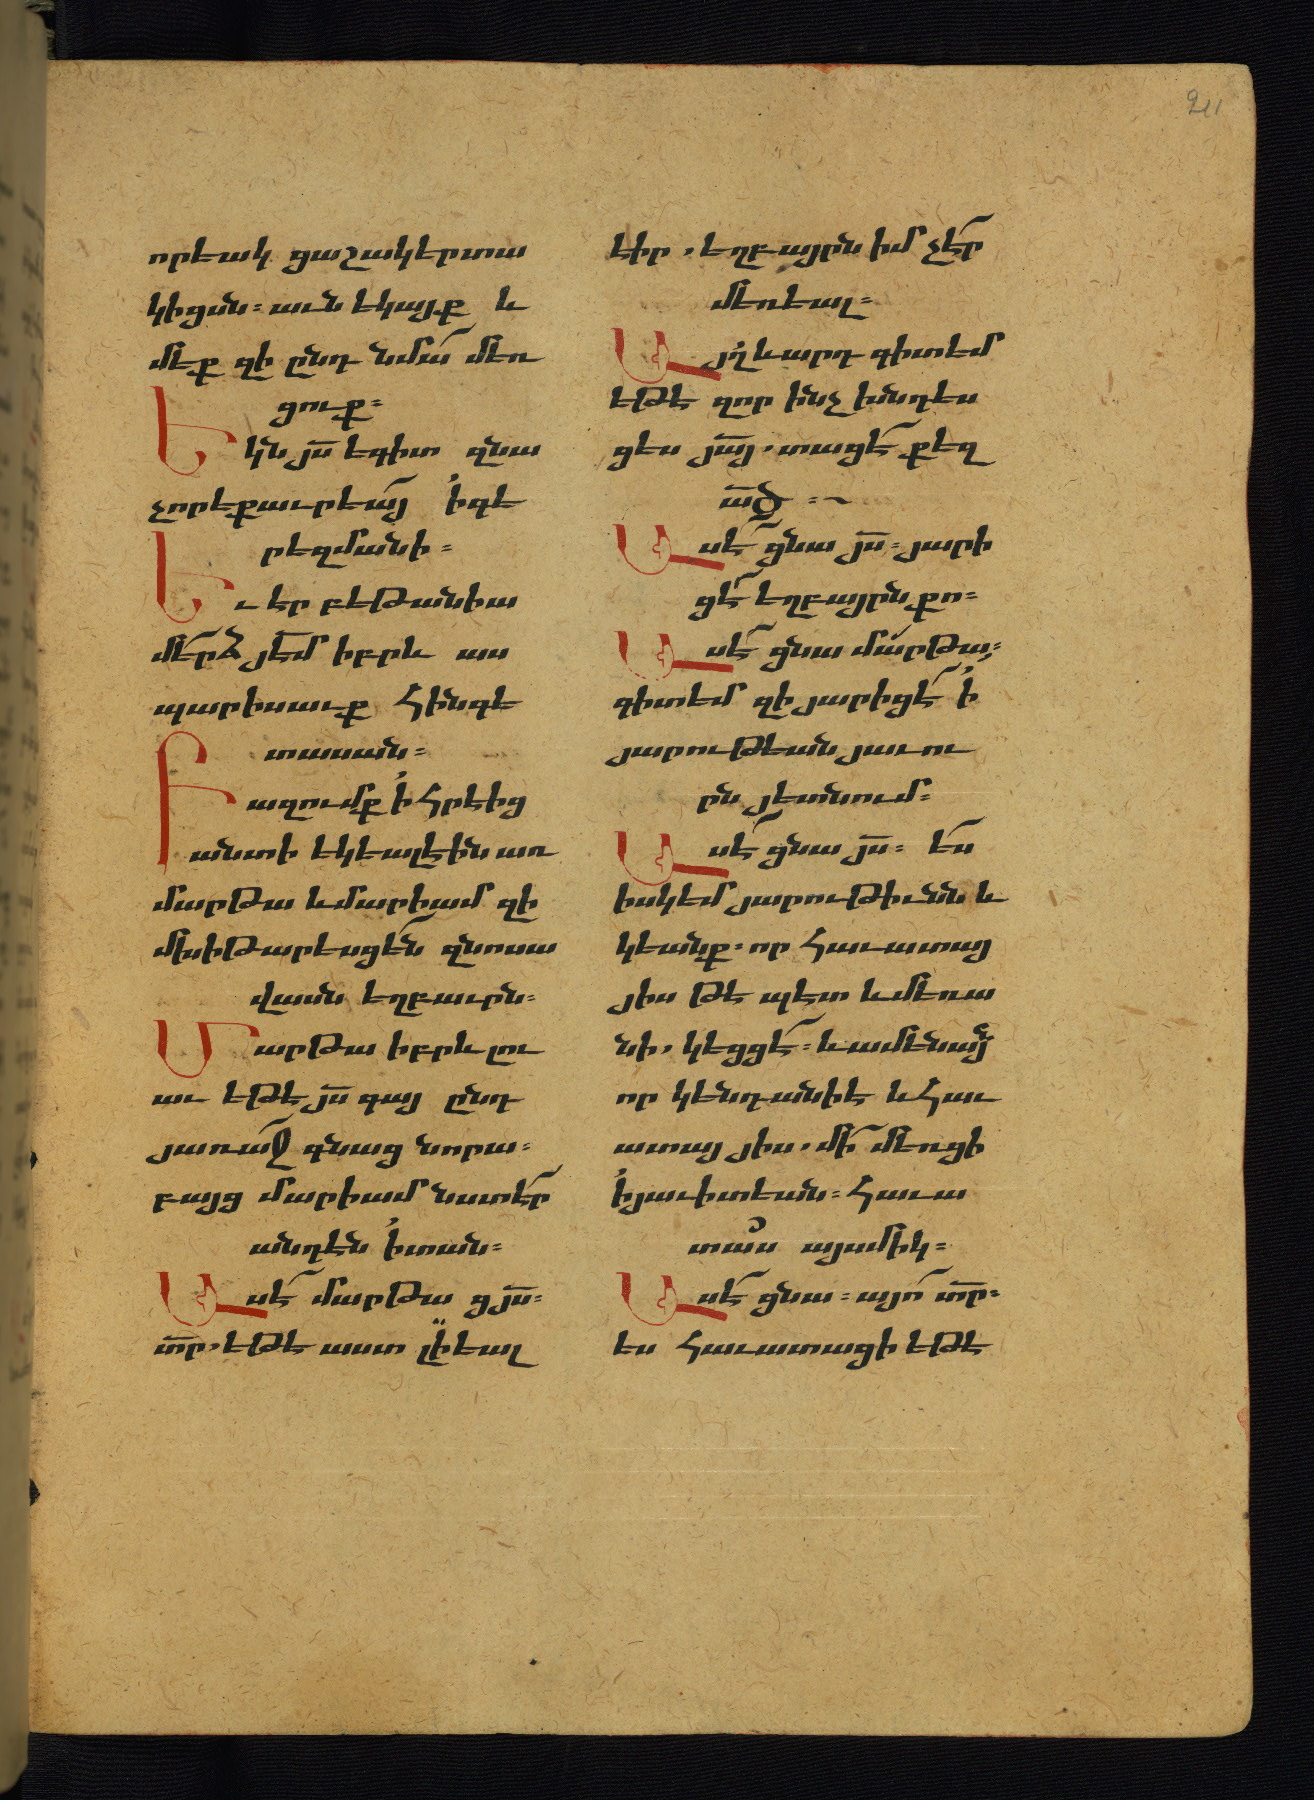 որեակ ցաշակերտա
կիցսն։ աւն եկայք և
մեք զի ընդ նմա՜ մեռ
ցուք։
Եկն յս̅ եգիտ զնա
չորեքաւրեա՜յ ՛ի գե
րեզմանի։
Եւ էր բեթանիա
մե՜րձ յե̅մ իբրև աս
պարիսաւք հինգե
տասան։
Բազումք ՛ի հրեից
անտի եկեալէին առ
մարթա և մարիամ զի
մխիթարեսցե՜ն զնոսա
վասն եղբաւրն։
Մարթա իբրև լու
աւ եթե յս̅ գայ ընդ
յառա՜ջ գնաց նորա։
բայց մարիամ նստե՜ր
անդէն ՛ի տան։
Ասե՜ մարթա ցյս̅։
տ̅ր, եթե աստ լի̈եալ
211
էիր, եղբայրն իմ չե՜ր
մեռեալ։
Այլ և արդ գիտեմ
եթե զոր ինչ խնդես
ցես յա̅յ, տացե՜ քեզ
ա̅ծ ։~
Ասե՜ ցնա յս̅։ յարի
ցե՜ եղբայրն քո։
Ասե՜ ցնա մա՜րթա։
գիտեմ զի յարիցե՜ ՛ի
յարութեան յաւու
րն յետնում։
Ասե՜ ցնա յս̅։ ե՜ս
իսկեմ յարութիւնն և
կեանք։ որ հաւատայ
յիս թե պետ և մեռա
նի, կեցցե՜։ և ամենայն
որ կենդանիե և հաւ
ատայ յիս, մի՜ մեռցի
՛ի յաւիտեան։ հաւա
տա՞ս այսմիկ։
Ասե՜ ցնա։ այո՜ տ̅ր։
ես հաւատացի եթե